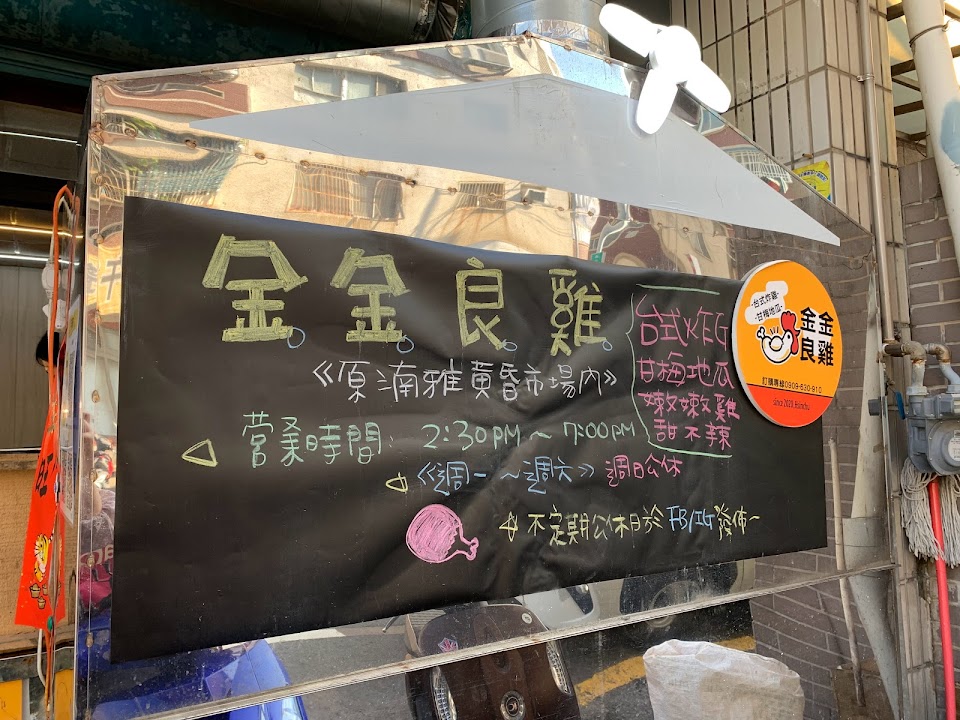 金金良雞
《原湳雅黃昏市場內》
營業時間: 2:30PM~7:00PM
《週一~週六》週日公休
不定期公休日於FB/IG發佈~
台式炸G
甘梅地瓜
嫩嫩雞
甜不辣
-台式炸雞-
-甘梅地瓜-
金金
良雞
訂購專線0909-630-910
since 2020. Hsinchu